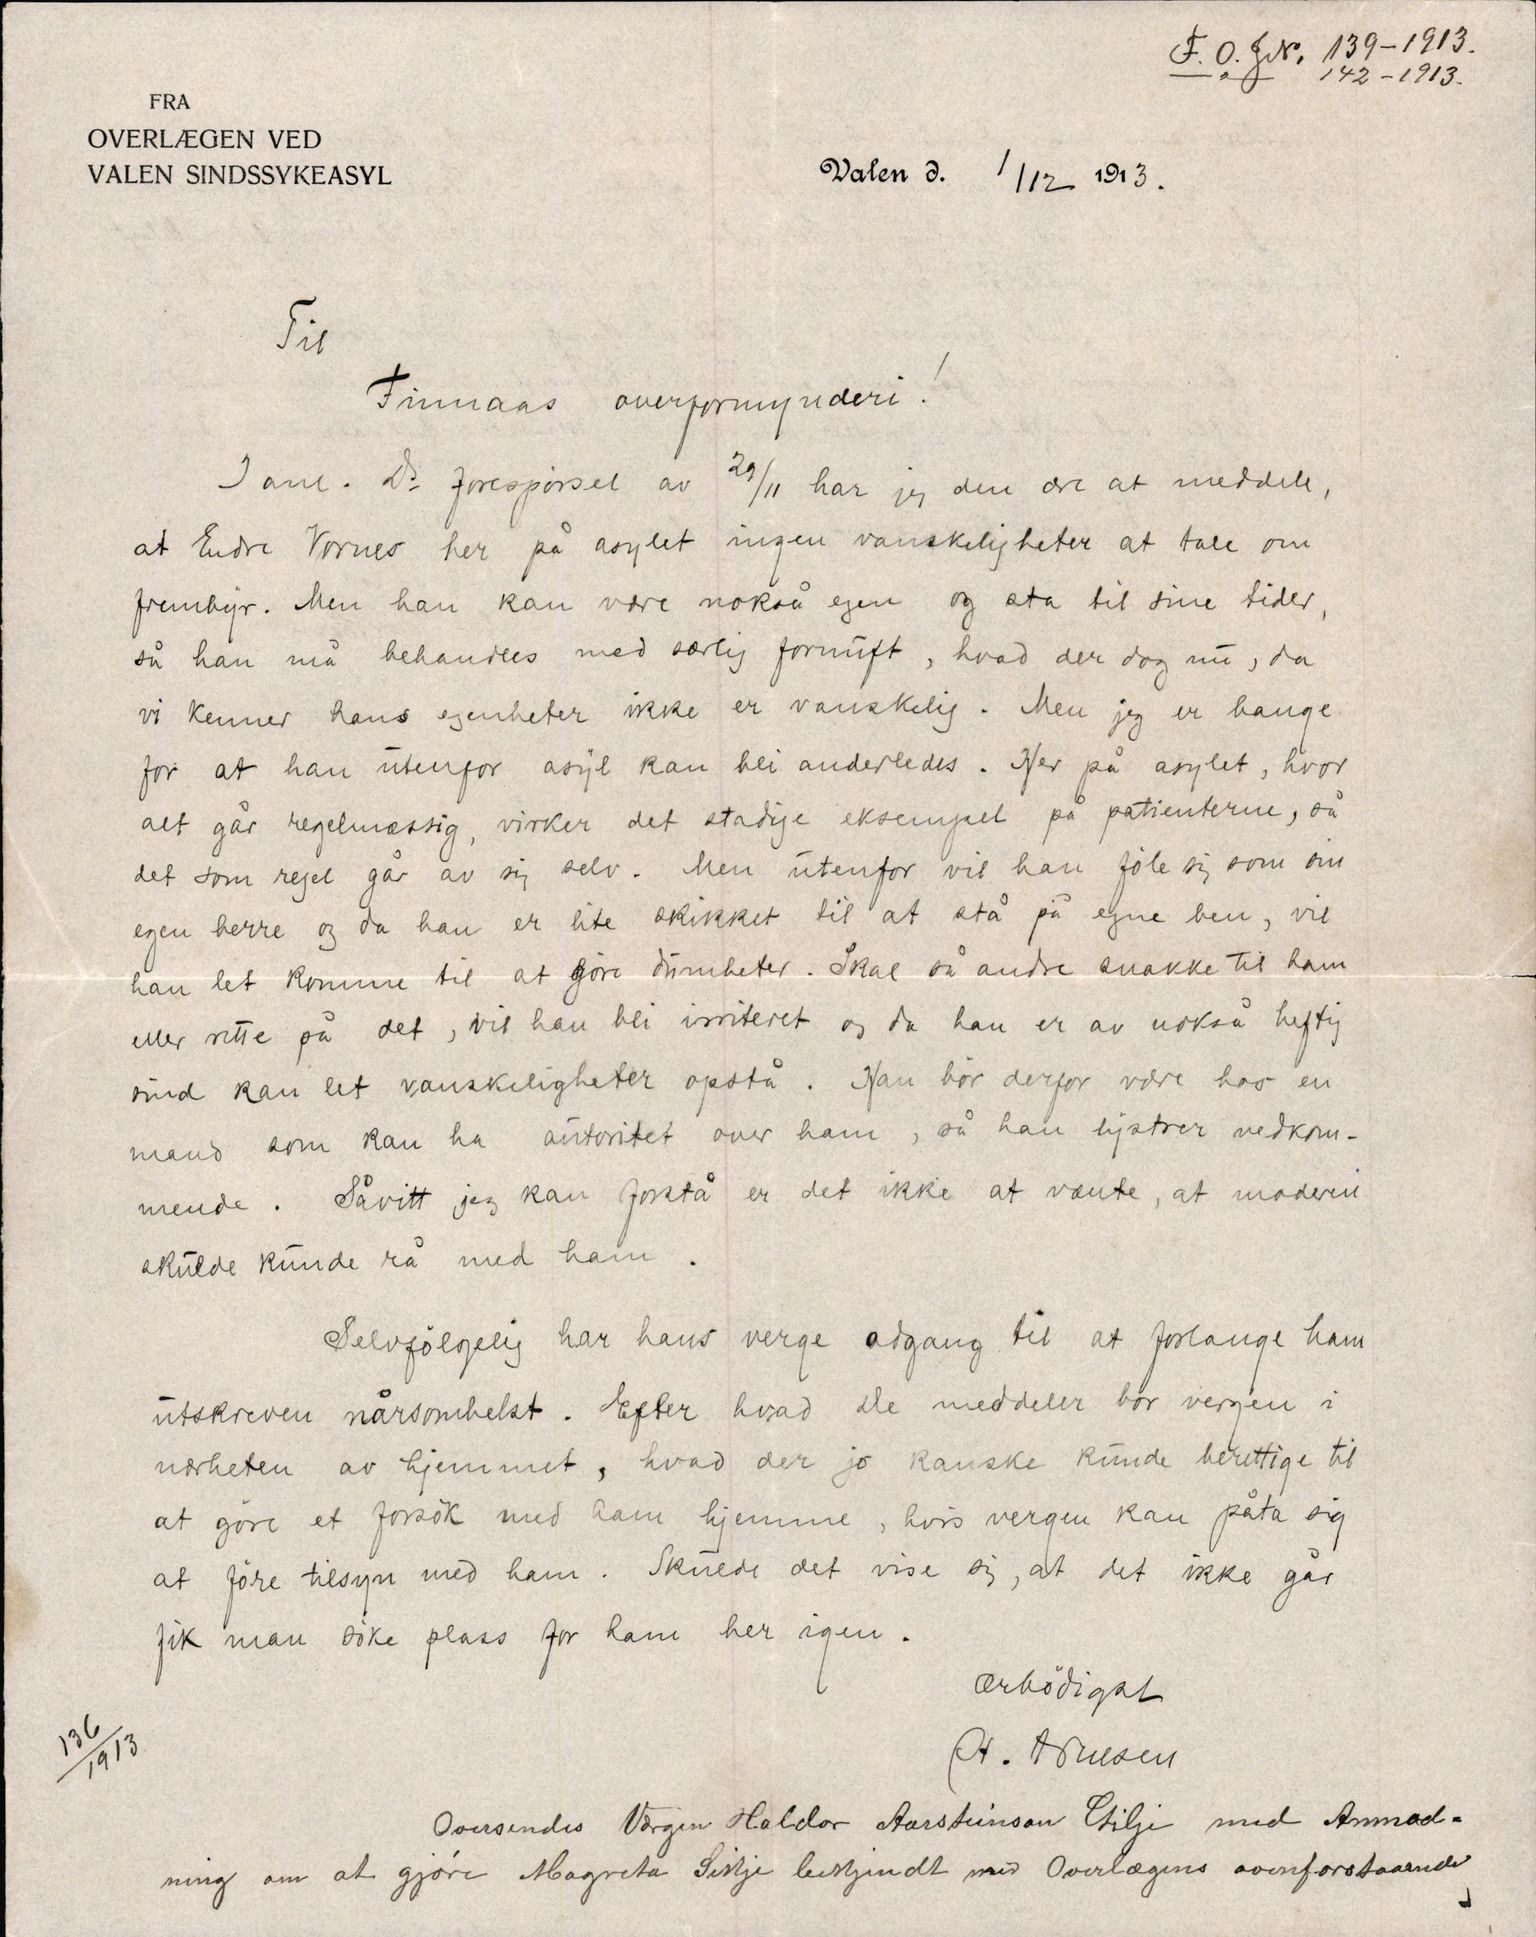 F. O. J.Nr. 139-1913.
142-1913.
FRA
OVERLÆGEN VED
VALEN SINDSSYKEASYL
Valen d. 1/12 1913.
Til
Finnaas overformynderi!
I anl. Ds forespörsel av 29/11 har jeg den ære at meddele,
at Endre Vornes her på asylet ingen vanskeligheter at tale om
frembyr. Men han kan være nokså egen og sta til sine tider,
så han må behandles med særlig fornuft, hvad der dog nu, da
vi kenner hans egenheter ikke er vanskelig. Men jeg er bange
for at han utenfor asyl kan bli anderledes. Her på asylet, hvor
alt går regelmæssig, virker det stadige eksempel på patienterne, så
det som regel går av sig selv. Men utenfor vil han föle sig som sin
egen herre og da han er lite skikket til at stå på egne ben, vil
han let komme til at göre dumheter. Skal så andre snakke til ham
eller rette på det, vil han bli irriteret og da han er av nokså heftig
sind kan let vanskeligheter opstå. Han bör derfor være hos en
mand som kan ha autoritet over ham, så han lystrer vedkom-
mende. Såvitt jeg kan forstå er det ikke at vænte, at moderen
skulde kunde rå med ham.
Selvfölgelig har hans verge adgang til at forlange ham
utskreven nårsomhelst. Efter hvad De meddeler bor vergen i
nærheten av hjemmet, hvad der jo kanske kunde berettige til
at göre et forsök med ham hjemme, hvis vergen kan påta sig
at före tilsyn med ham. Skulde det vise sig, at det ikke går
fik man söke plass for ham her igen.
Ærbödigst
136
1913
Oversendes Værgen Haldor Aarsteinson med Anmod-
ning om at gjöre Magreta bekjendt med Overlægens ovenforstaaende